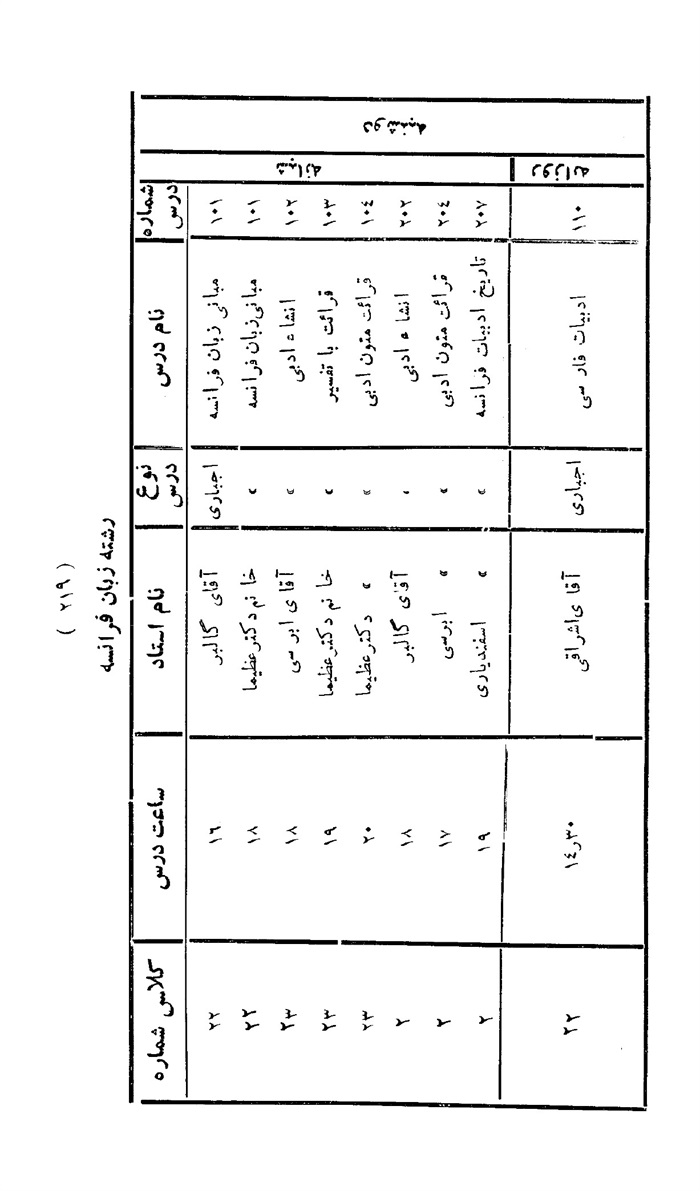 ( ۲۱۹ )
رشته زبان فرانسه
شماره درس نام درس نوع درس نام استاد ساعت درس کلاس شماره
دوشنبه
شبانه
۱۰۱ مبانی زبان فرانسه اجباری آقای گالبر ۱۶ ۲۲
۱۰۱ مبانی زبان فرانسه » خانم دکتر عظیما ۱۸ ۲۲
۱۰۲ انشاء ادبی » آقای ابرسی ۱۸ ۲۳
۱۰۳ قرائت با تفسیر » خانم دکتر عظیما ۱۹ ۲۳
۱۰۴ قرائت متون ادبی » » دکتر عظیما ۲۰ ۲۳
۲۰۲ انشاء ادبی » آقای گالبر ۱۸ ۲
۲۰۴ قرائت متون ادبی » » ابرسی ۱۷ ۲
۲۰۷ تاریخ ادبیات فرانسه » » اسفندیاری ۱۹ ۲
روزانه
۱۱۰ ادبیات فارسی اجباری آقای اشراقی ۱۴ر۳۰ ۲۲